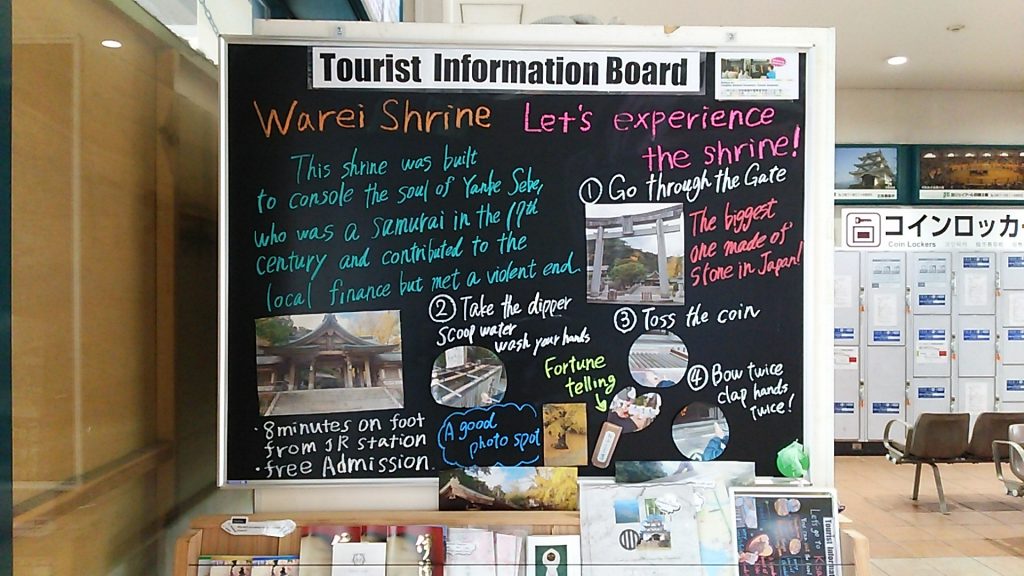 Tourist Information Board
Warei Shrine
Let's experience
the shrine!
This shrine was built
to console the soul of Yanbe Sebe,
who was a samurai in the 17th
century and contributed to the
local finance but met a violent end.
① Go through the Gate
The biggest
one made of
stone in Japan!
② Take the dipper
scoop water
wash your hands
③ Toss the coin
Fortune
telling
④ Bow twice
clap hands
twice!
・8minutes on foot
from JR station
・free Admission
A good
photo spot
コインロッカー
Coin Lockers
Tourist Informa
Let's go to